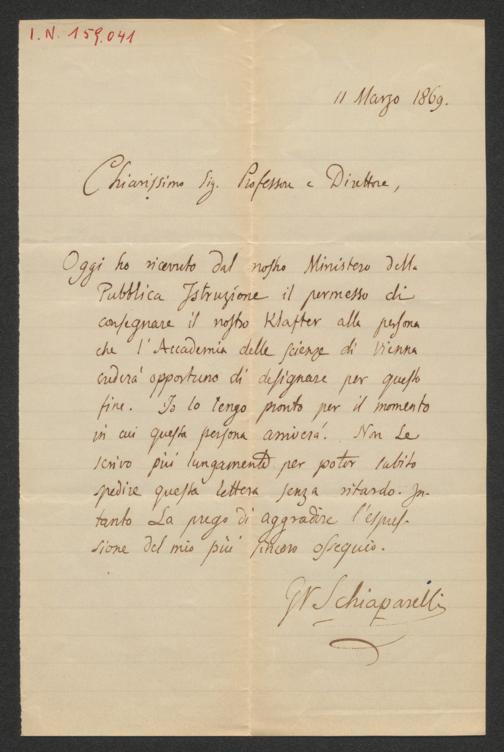 I. N. 159.041
11 Marzo 1869.
Chiarissimo Sig. Professore e Direttore,
Oggi ho ricevuto dal nostro Ministero della
Pubblica Istruzione il permesso di
consegnare il nostro Klafter alla persona
che l'Accademia delle Scienze di Vienna
crederà opportuno di designare per questo
fine. Io lo tengo pronto per il momento
in cui questa persona arriverà. Non Le
scrivo più lungamente per poter subito
spedire questa lettera senza ritardo. In-
tanto La prego di aggradire l'espres-
sione del mio più sincero ossequio.
GV Schiaparelli